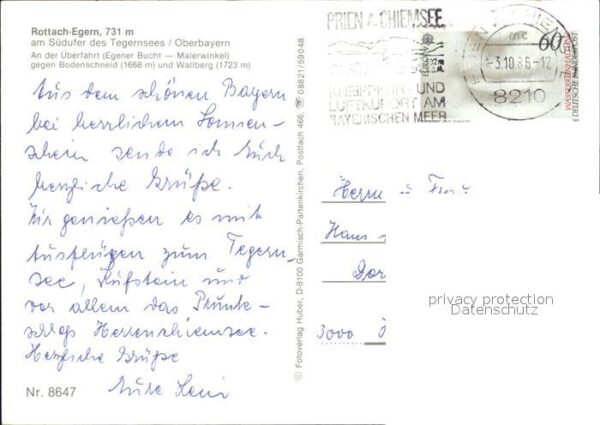 Rottach-Egern, 731 m
am Südufer des Tegernsees / Oberbayern
An der Überfahrt (Egerner Bucht — Malerwinkel)
gegen Bodenschneid (1668 m) und Wallberg (1723 m)
Aus dem schönen Bayern
bei herrlichem Sonnen-
schein sende ich Euch
herzliche Grüße.
Wir genießen es mit
Ausflügen zum Tegern-
see, Kufstein und
vor allem das Prunk-
schloß Herrenchiemsee.
Herzliche Grüße
Eure Leni
Nr. 8647
© Fotoverlag Huber, D-8100 Garmisch-Partenkirchen, Postfach 466, ☎ 08821/59048
PRIEN A. CHIEMSEE
KNEIPPKUR- UND
LUFTKURORT AM
BAYERISCHEN MEER
-3.10.86-12
8210
60
DEUTSCHE BUNDESPOST
Herrn u Frau
Hans
Dor
3000
privacy protection
Datenschutz